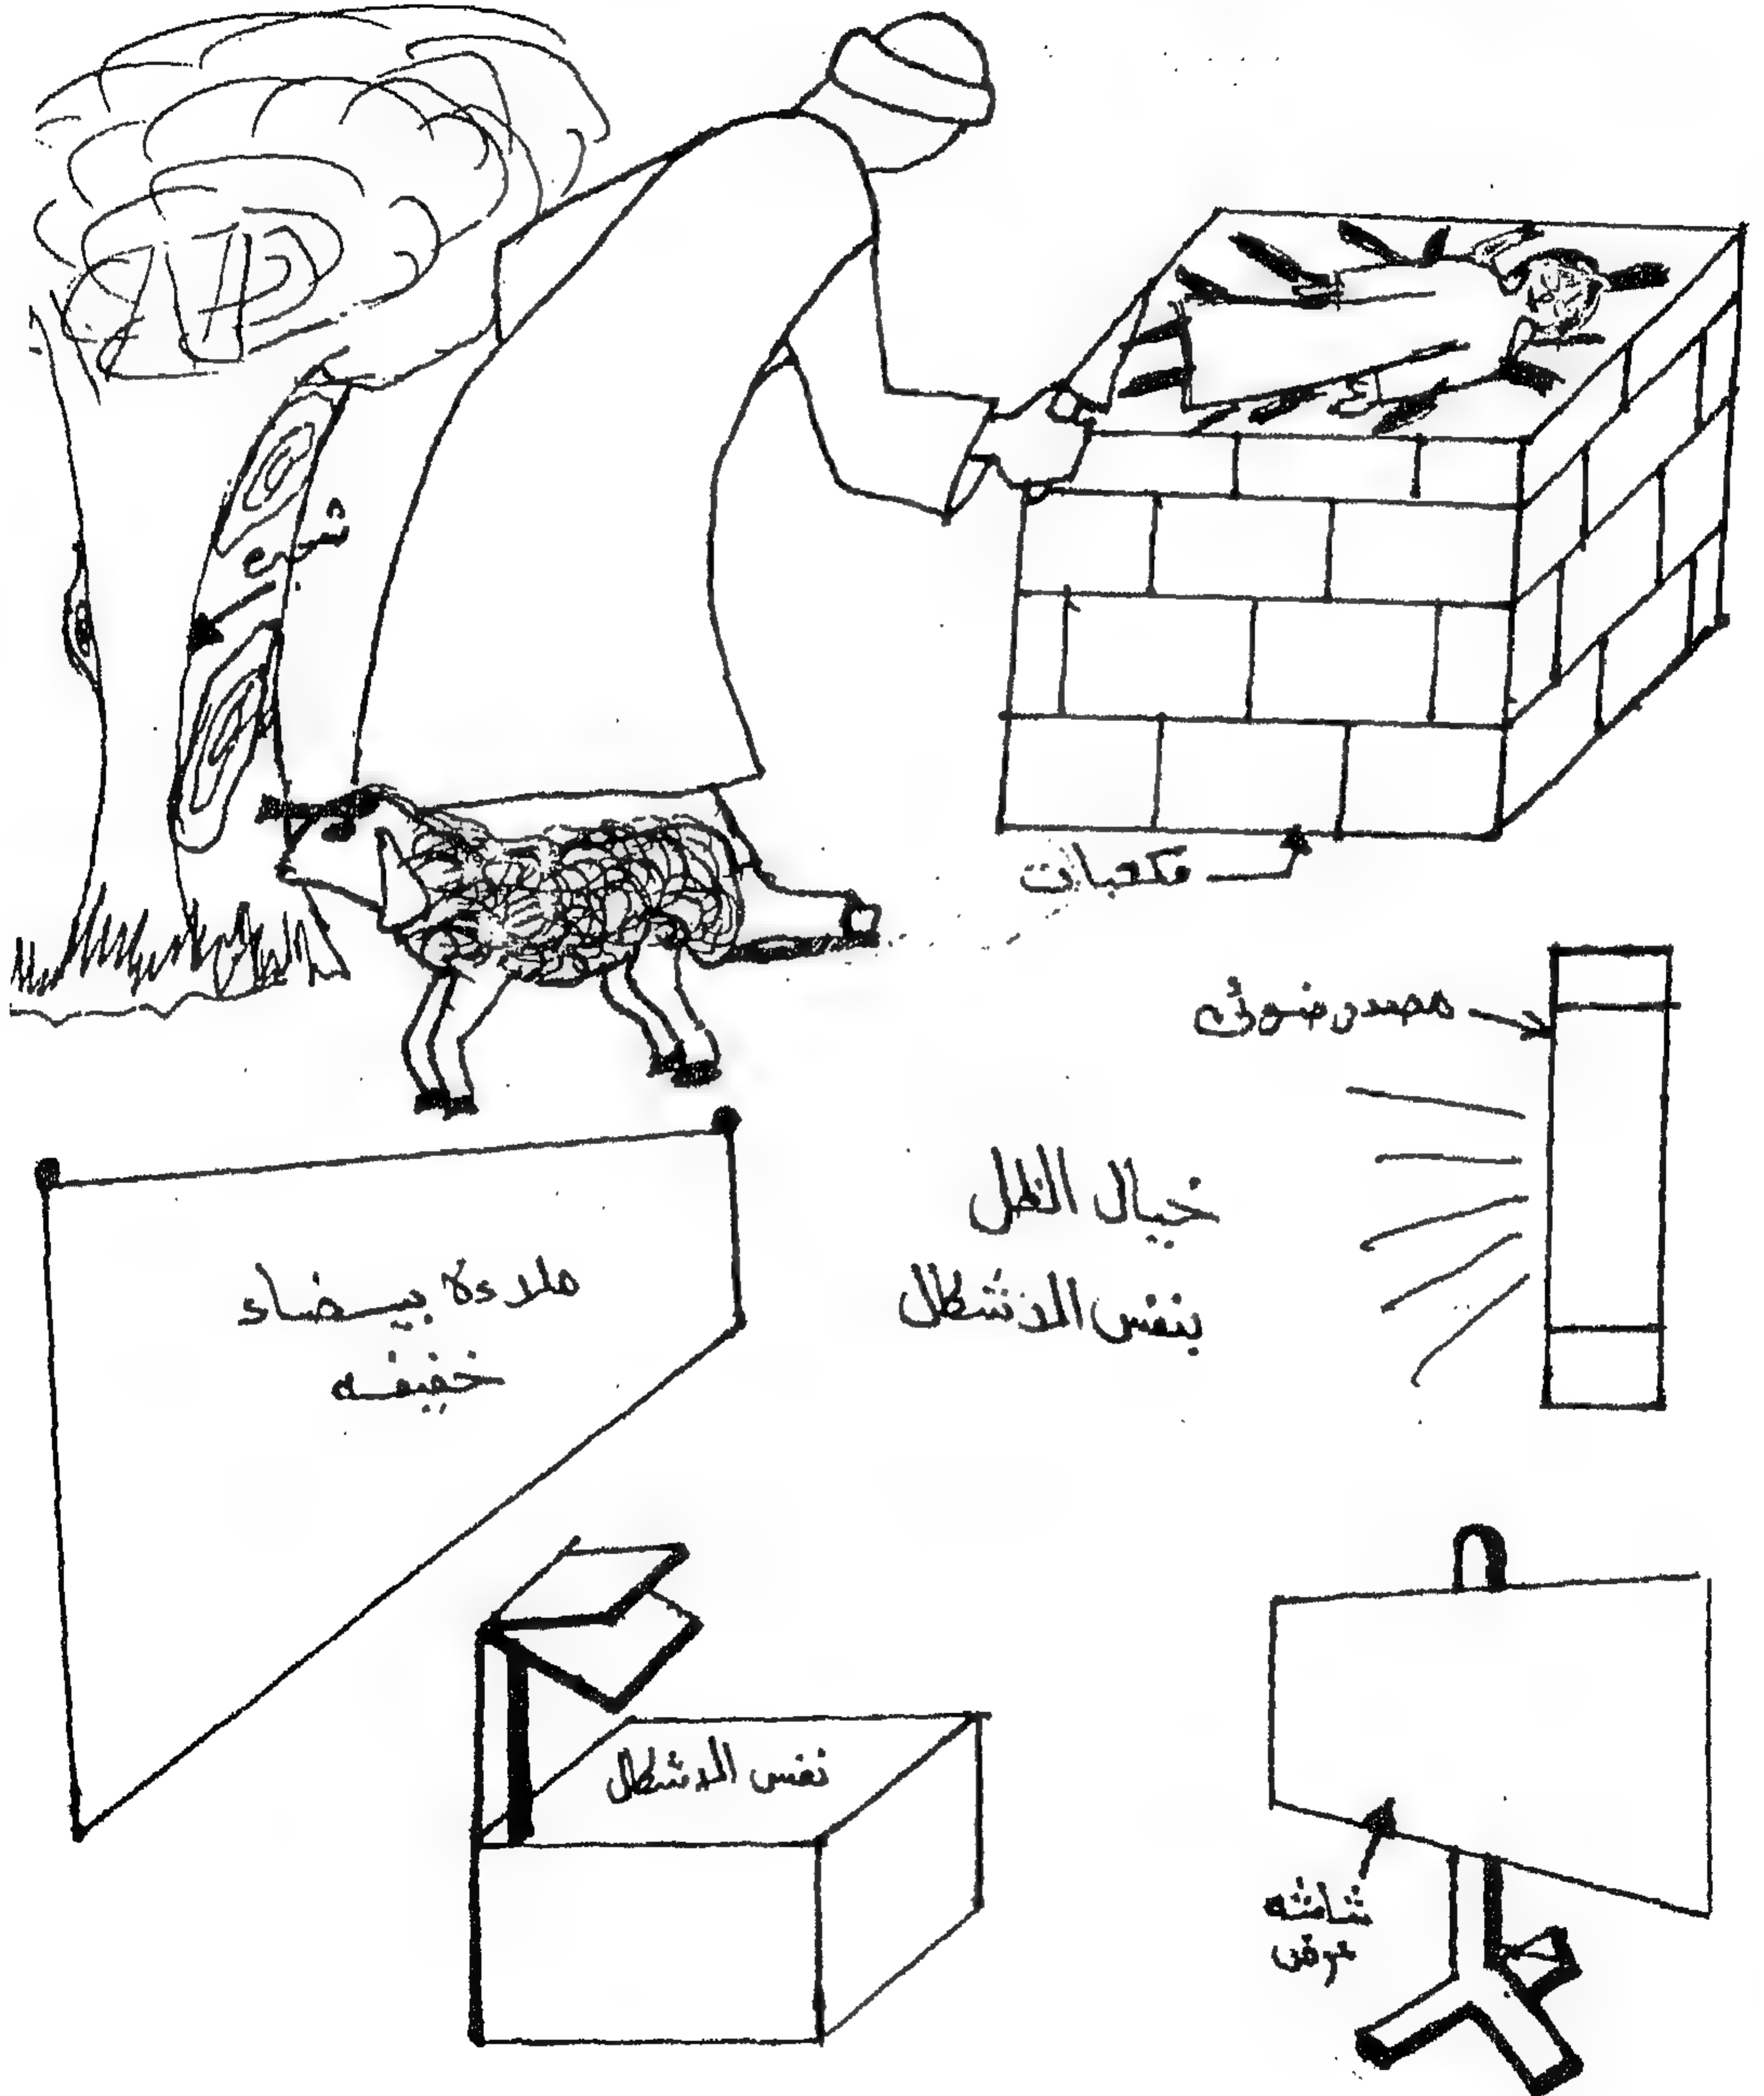 مكعبات
مصدر ضوئى
خيال الظل
بنفس الاشكال
ملاءة بيضاء
خفيفه
نفس الاشكال
شاشه
عرض